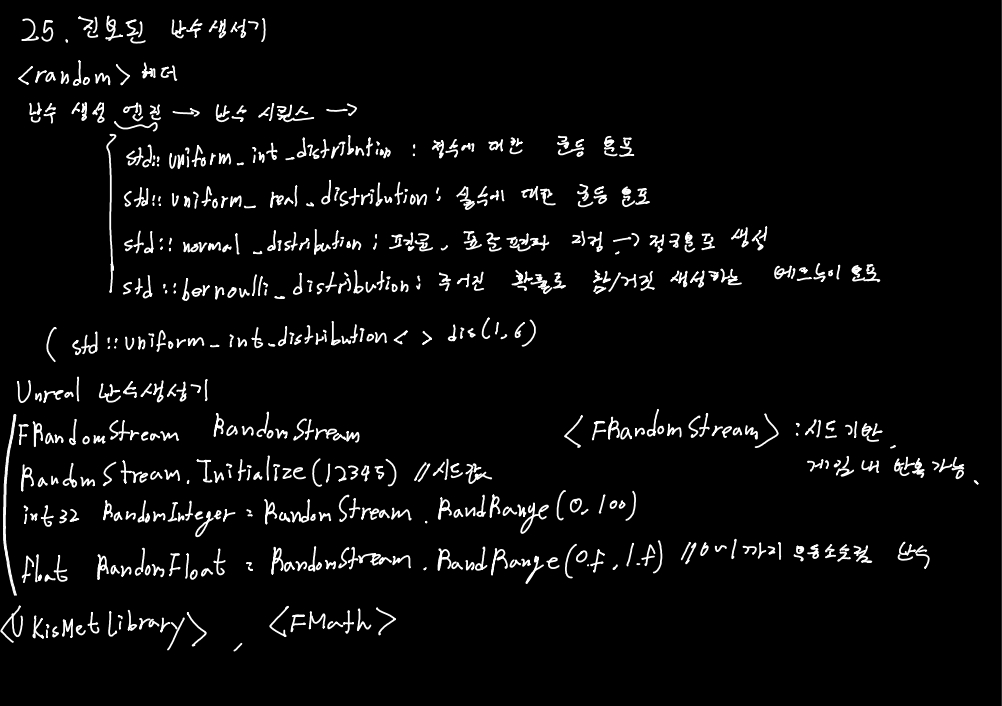 25. 진보된 난수생성기
<random> 헤더
난수 생성 엔진 → 난수 시퀀스 →
std::uniform_int_distribution : 정수에 대한 균등 분포
std::uniform_real_distribution : 실수에 대한 균등 분포
std::normal_distribution : 평균, 표준편차 지정 → 정규분포 생성
std::bernoulli_distribution : 주어진 확률로 참/거짓 생성하는 베르누이 분포
( std::uniform_int_distribution < > dis(1, 6)
Unreal 난수생성기
FRandomStream RandomStream
<FRandomStream> : 시드기반,
게임 내 반복 가능.
RandomStream.Initialize(12345) // 시드값
int32 RandomInteger = RandomStream.RandRange(0, 100)
float RandomFloat = RandomStream.RandRange(0.f, 1.f) // 0~1까지 부동소수점 난수
<UKisMetLibrary> , <FMath>